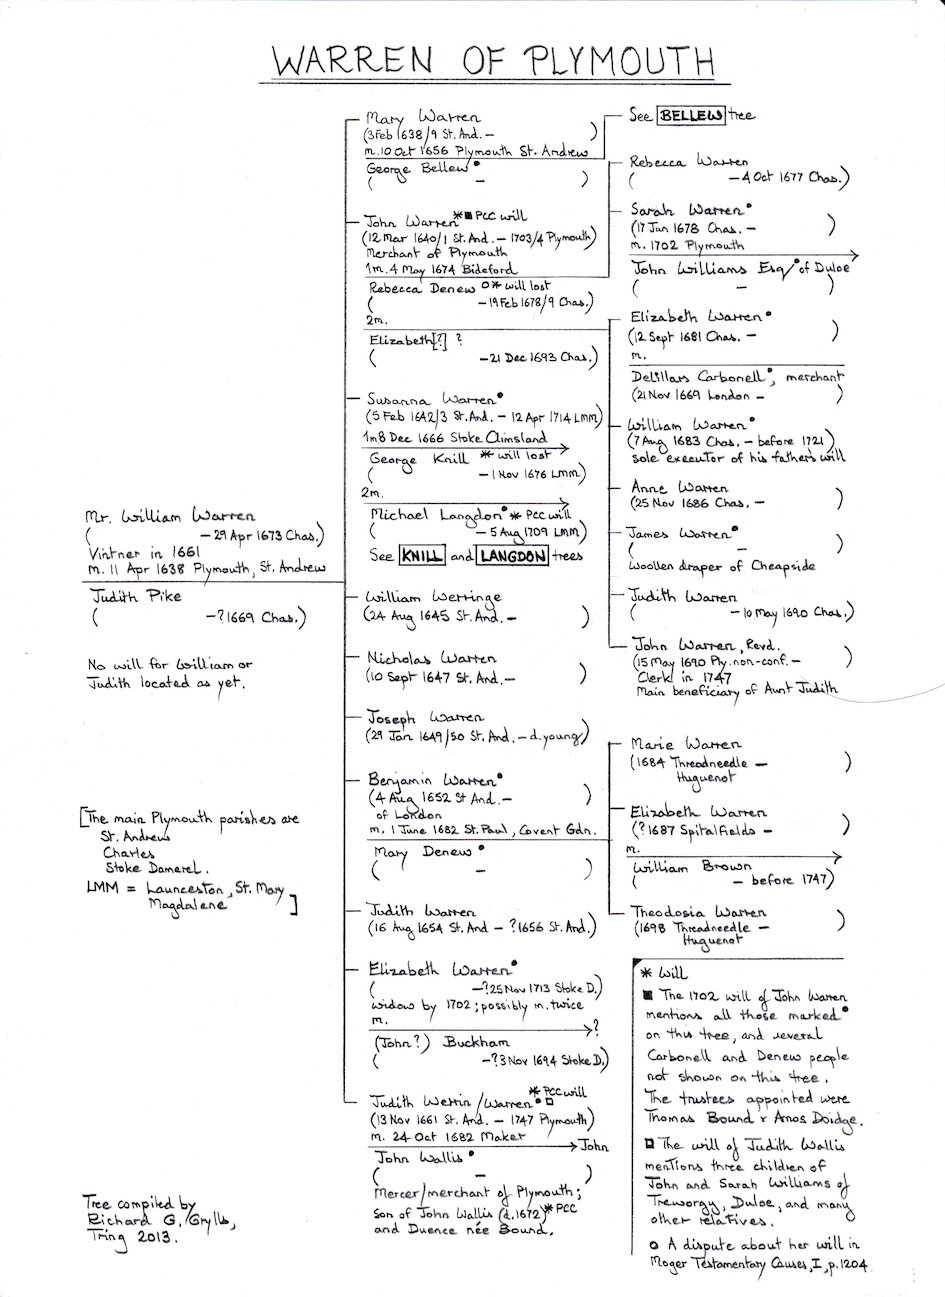 WARREN OF PLYMOUTH
Mr. William Warren
( — 29 Apr 1673 Chas.)
Vintner in 1661
m. 11 Apr 1638 Plymouth, St. Andrew
Judith Pike
( —?1669 Chas.)
No will for William or
Judith located as yet.
[The main Plymouth parishes are
St. Andrew
Charles
Stoke Damerel.
LMM = Launceston, St. Mary
Magdalene ]
Tree compiled by
Richard G. Grylls,
Tring 2013.
Mary Warren
(3 Feb 1638/9 St. And. — )
m. 10 Oct 1656 Plymouth St. Andrew
George Bellew•
( — )
John Warren *■ PCC will
(12 Mar 1640/1 St. And. — 1703/4 Plymouth)
Merchant of Plymouth
1m. 4 May 1674 Bideford
Rebecca Denew o* will lost
( — 19 Feb 1678/9 Chas.)
2m.
Elizabeth[?] ?
( — 21 Dec 1693 Chas.)
Susanna Warren•
(5 Feb 1642/3 St. And. — 12 Apr 1714 LMM)
1m 8 Dec 1666 Stoke Climsland
George Knill * will lost
( — 1 Nov 1676 LMM)
2m.
Michael Langdon• * PCC will
( — 5 Aug 1709 LMM)
See KNILL and LANGDON trees
William Werringe
(24 Aug 1645 St. And. — )
Nicholas Warren
(10 Sept 1647 St. And. — )
Joseph Warren
(29 Jan 1649/50 St. And. — d. young)
Benjamin Warren•
(4 Aug 1652 St And. — )
of London
m. 1 June 1682 St. Paul, Covent Gdn.
Mary Denew•
( — )
Judith Warren
(16 Aug 1654 St. And — ?1656 St. And.)
Elizabeth Warren•
( —?25 Nov 1713 Stoke D.)
widow by 1702; possibly m. twice
m. ?
(John?) Buckham
( —?3 Nov 1694 Stoke D.)
Judith Werrin/Warren•□ * PCC will
(13 Nov 1661 St. And. — 1747 Plymouth)
m. 24 Oct 1682 Maker
John
John Wallis•
( — )
Mercer/merchant of Plymouth;
son of John Wallis (d. 1672) * PCC
and Duence née Bound.
See BELLEW tree
Rebecca Warren
( — 4 Oct 1677 Chas.)
Sarah Warren•
(17 Jun 1678 Chas. — )
m. 1702 Plymouth
John Williams Esq• of Duloe
( — )
Elizabeth Warren•
(12 Sept 1681 Chas. — )
m.
Delillars Carbonell•, merchant
(21 Nov 1669 London — )
William Warren•
(7 Aug 1683 Chas. — before 1721)
sole executor of his father's will
Anne Warren
(25 Nov 1686 Chas. — )
James Warren•
( — )
Woollen draper of Cheapside
Judith Warren
( — 10 May 1690 Chas.)
John Warren, Revd.
(15 May 1690 Ply. non-conf. — )
Clerk in 1747
Main beneficiary of Aunt Judith
Marie Warren
(1684 Threadneedle — )
Huguenot
Elizabeth Warren
(?1687 Spitalfields — )
m.
William Brown
( — before 1747)
Theodosia Warren
(1698 Threadneedle — )
Huguenot
* Will
■ The 1702 will of John Warren
mentions all those marked•
on this tree, and several
Carbonell and Denew people
not shown on this tree.
The trustees appointed were
Thomas Bound & Amos Doidge.
□ The will of Judith Wallis
mentions three children of
John and Sarah Williams of
Treworgy, Duloe, and many
other relatives.
o A dispute about her will in
Moger Testamentary Causes, I, p. 1204.